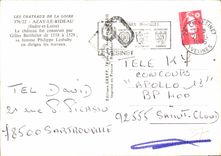 LES CHATEAUX DE LA LOIRE
376/22 - AZAY-LE-RIDEAU
(Indre-et-Loire)
Le château fut construit par
Gilles Berthelot de 1518 à 1529 ;
sa femme Philippe Lesbahy
en dirigea les travaux.
TEL David
21 rue P. Picasso
78500 SARTROUVILLE
TELE K7
CONCOURS
"APOLLO 13"
BP 400
92555 SAINT-CLOUD